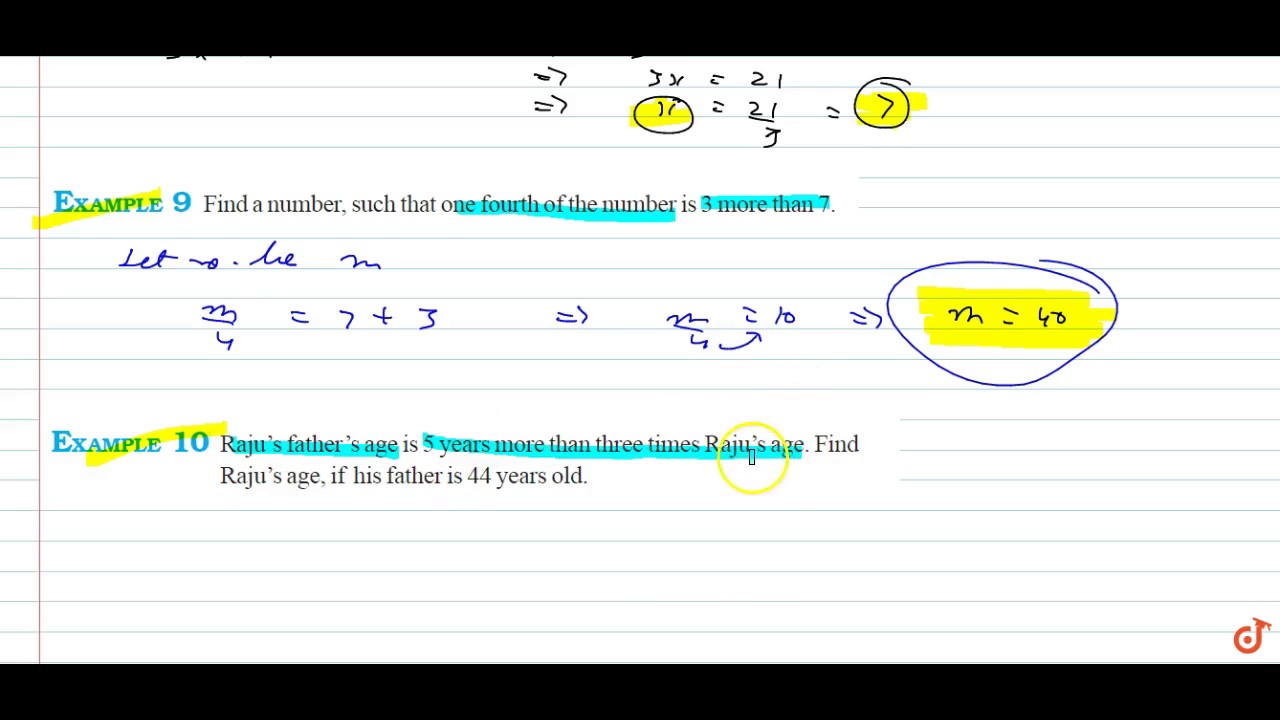 => 3x = 21
=> x = 21/3 = 7
EXAMPLE 9 Find a number, such that one fourth of the number is 3 more than 7.
Let no. be m
m/4 = 7 + 3 => m/4 = 10 => m = 40
EXAMPLE 10 Raju's father's age is 5 years more than three times Raju's age. Find
Raju's age, if his father is 44 years old.